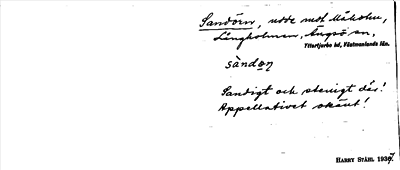 Sandörn, udde mot Måholm,
Långholmen, Ängsö sn,
Yttertjurbo hd, Västmanlands län.
sàndo̲n̲
Sandigt och stenigt där!
Appellativet okänt!
HARRY STÅHL 1937.